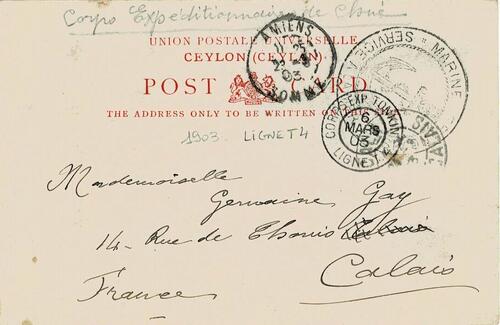 Corps Expéditionnaire de Chine
UNION POSTALE UNIVERSELLE
CEYLON (CEYLAN)
POST CARD
THE ADDRESS ONLY TO BE WRITTEN ON THIS
AMIENS
25
03
SOMME
MARINE
SERVICE
CORPS EXP. TONKIN
6
MARS
03
LIGNE
CALAIS
1903. LIGNET4
Mademoiselle
Germaine Gay
14 Rue de Thouis
Calais
France